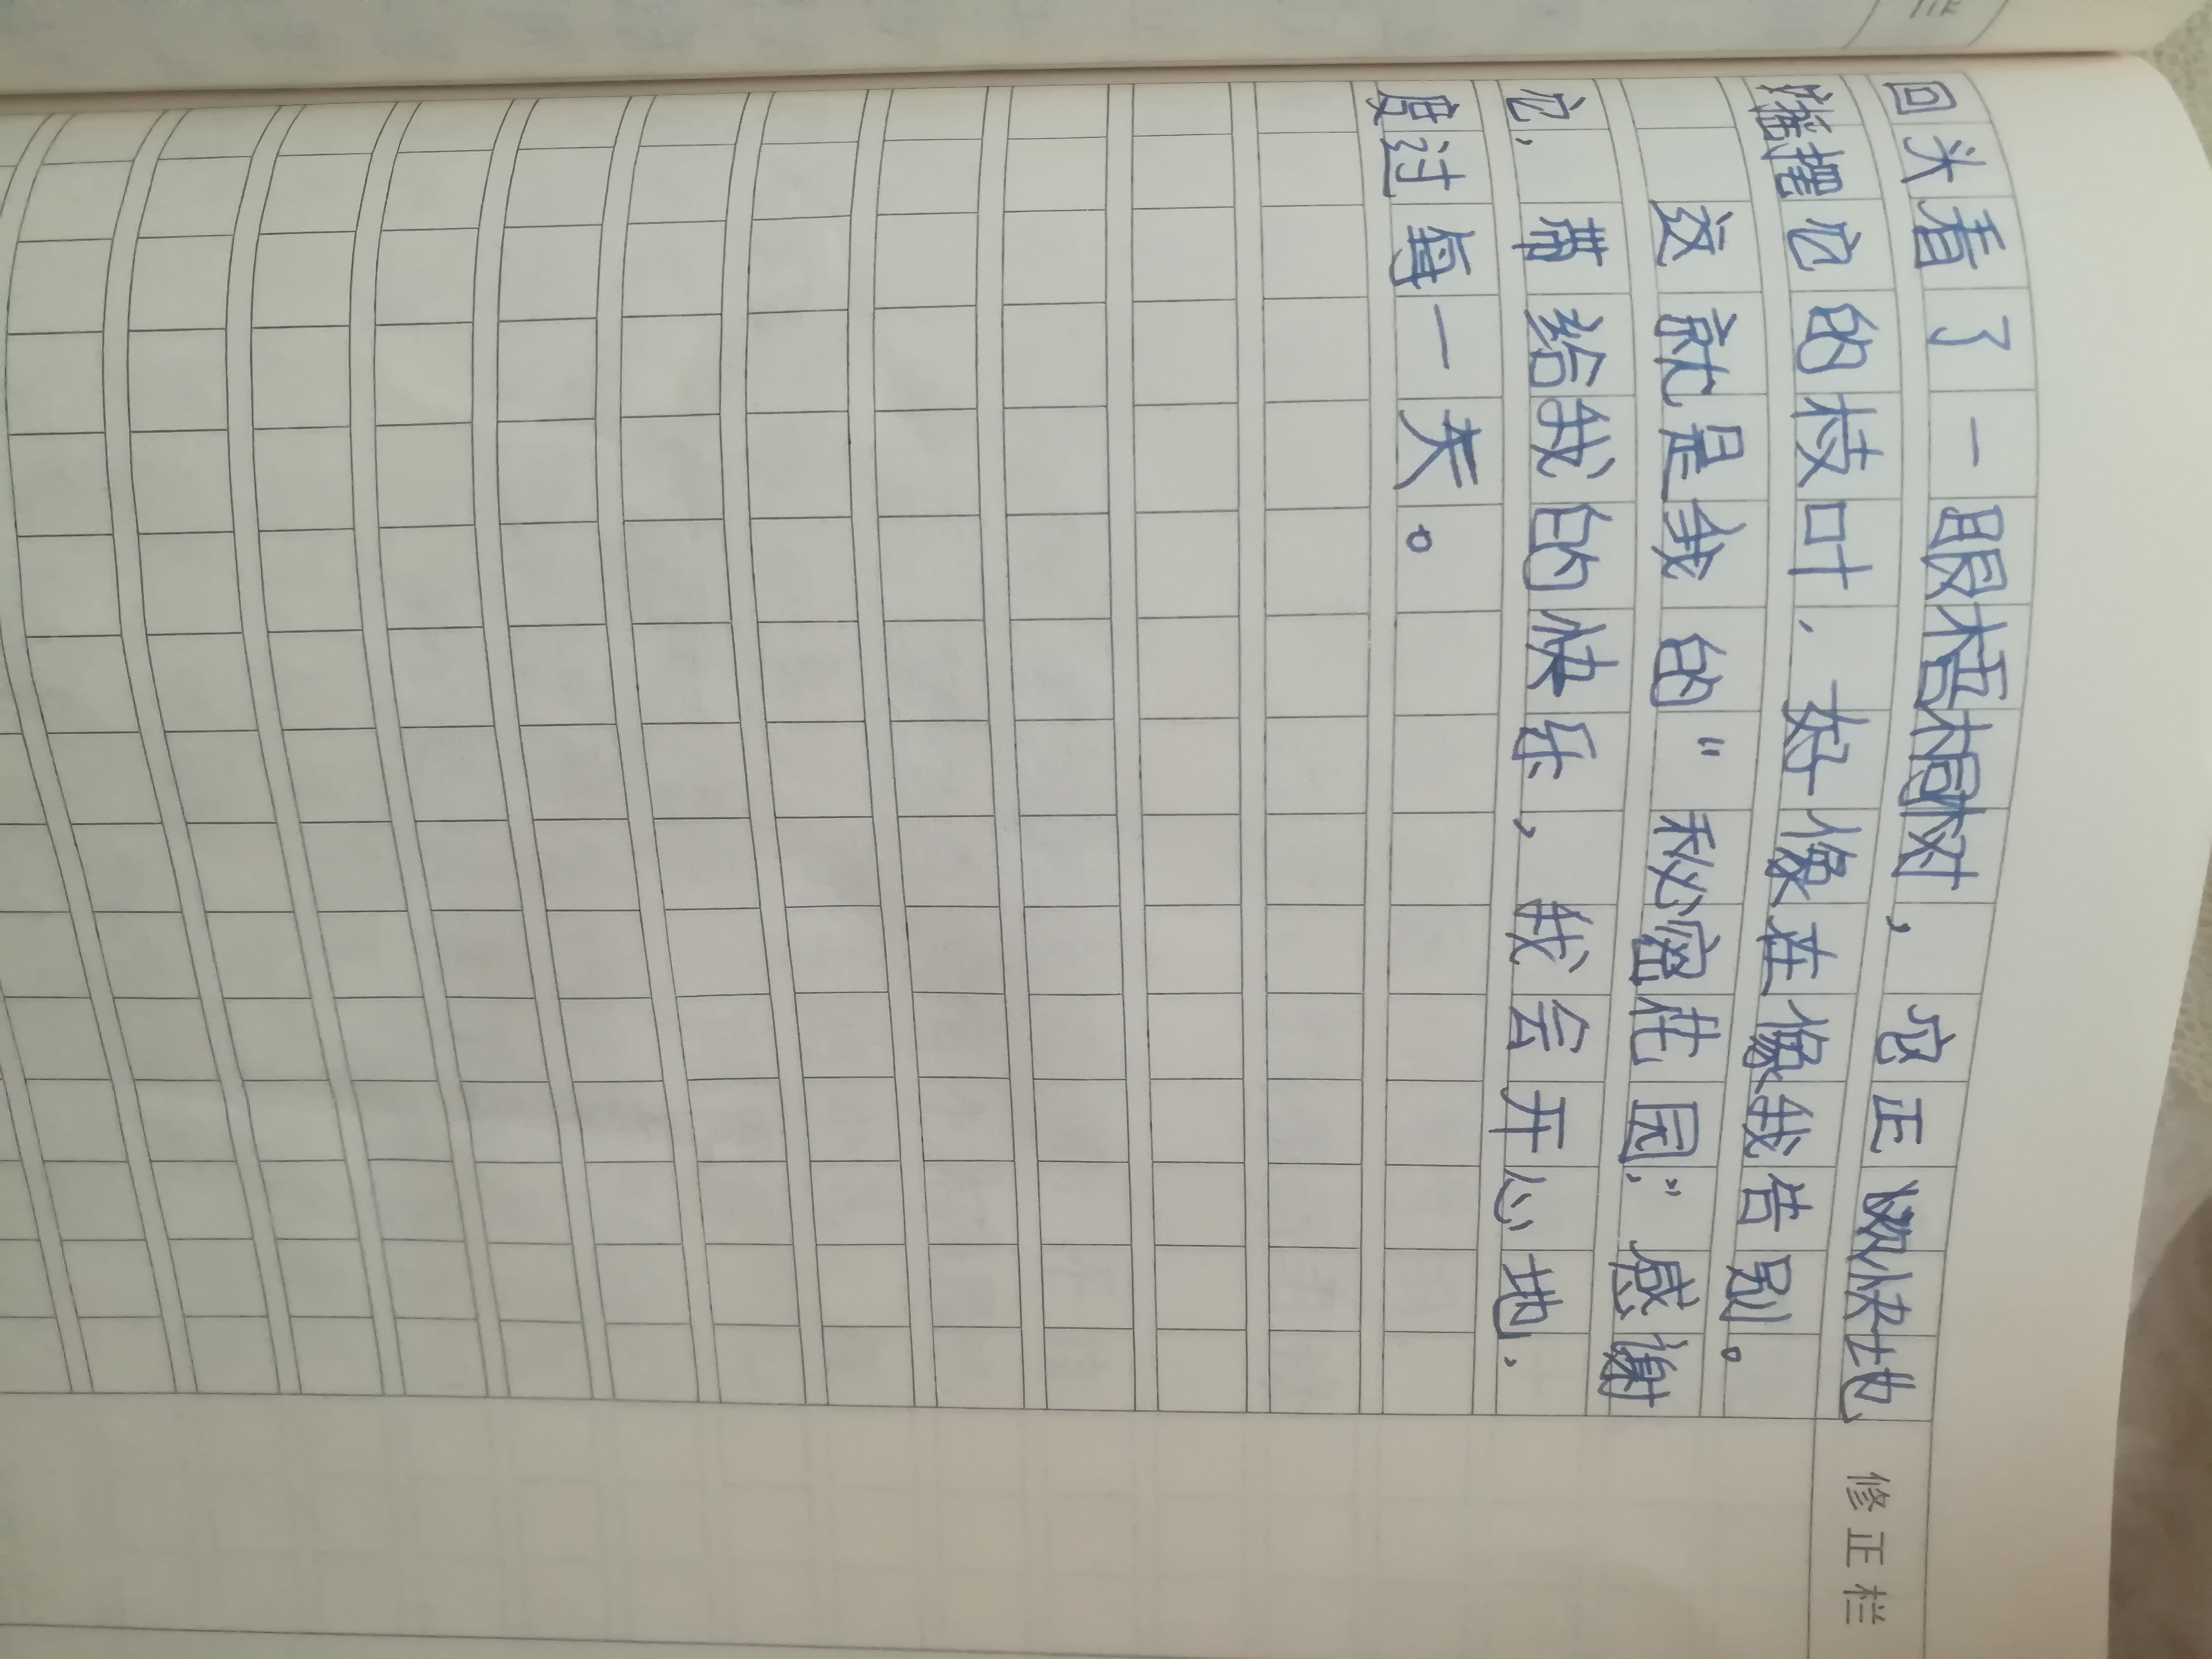 回头看了一眼梧桐树，它正欢快地
摇摆它的枝叶，好像在像我告别。
这就是我的“秘密花园”，感谢
它，带给我的快乐，我会开心地，
度过每一天。
修正栏